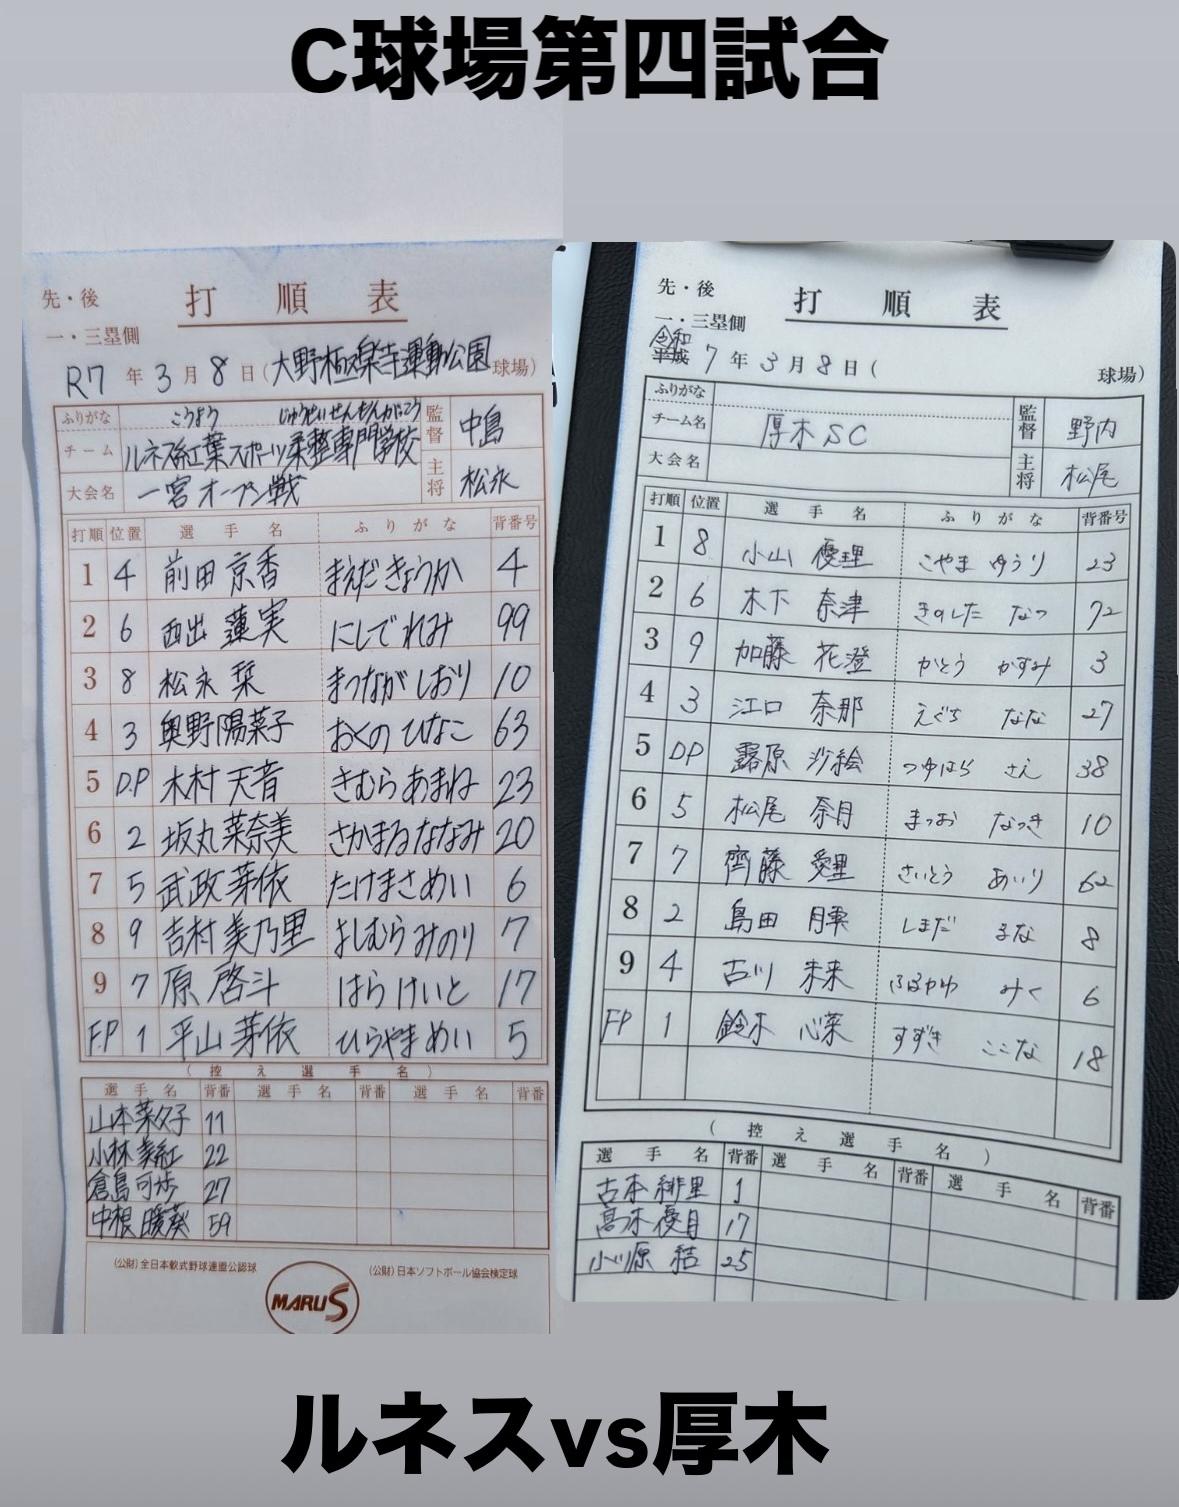 C球場第四試合
先・後 打順表
一・三塁側
R7年3月8日(大野極楽寺運動公園球場)
ふりがな こうよう じゅうせいせんもんがっこう
チーム ルネス紅葉スポーツ柔整専門学校 監督 中島
大会名 一宮オープン戦 主将 松永
打順 位置 選手名 ふりがな 背番号
1 4 前田 京香 まえだ きょうか 4
2 6 西出 蓮実 にしで れみ 99
3 8 松永 栞 まつなが しおり 10
4 3 奥野 陽菜子 おくの ひなこ 63
5 DP 木村 天音 きむら あまね 23
6 2 坂丸 菜奈美 さかまる ななみ 20
7 5 武政 芽依 たけまさ めい 6
8 9 吉村 美乃里 よしむら みのり 7
9 7 原 啓斗 はら けいと 17
FP 1 平山 芽依 ひらやま めい 5
(控え選手名)
選手名 背番 選手名 背番 選手名 背番
山本菜々子 11
小林 美紅 22
倉島 可歩 27
中根 暖葵 59
(公財)全日本軟式野球連盟公認球 (公財)日本ソフトボール協会検定球
MARU S
先・後 打順表
一・三塁側
令和
平成 7年3月8日( 球場)
ふりがな
チーム名 厚木SC 監督 野内
大会名 主将 松尾
打順 位置 選手名 ふりがな 背番号
1 8 小山 優理 こやま ゆうり 23
2 6 木下 奈津 きのした なつ 72
3 9 加藤 花澄 かとう かすみ 3
4 3 江口 奈那 えぐち なな 27
5 DP 露原 沙絵 つゆはら さえ 38
6 5 松尾 奈月 まつお なつき 10
7 7 齊藤 愛里 さいとう あいり 62
8 2 島田 しまだ るな 8
9 4 古川 未来 ふるかわ みく 6
FP 1 鈴木 心菜 すずき ここな 18
(控え選手名)
選手名 背番 選手名 背番 選手名 背番
古本 緋里 1
髙木 優月 17
小川原 結 25
ルネスvs厚木